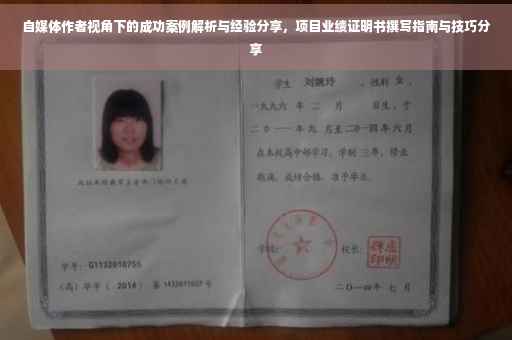 自媒体作者视角下的成功案例解析与经验分享，项目业绩证明书撰写指南与技巧分
享
学生 刘婉玲 ，性别 女 ，
一九九六 年 二 月 日生，于
二〇一一年九 月至二〇一四年 六 月
在本校高中部学习，学制 三 年，修业
期满，成绩合格，准予毕业。
学号： G1132010755
学校： 校长：
（高）毕字（ 2014 ）第 1432011607 号
二〇一四年 七 月